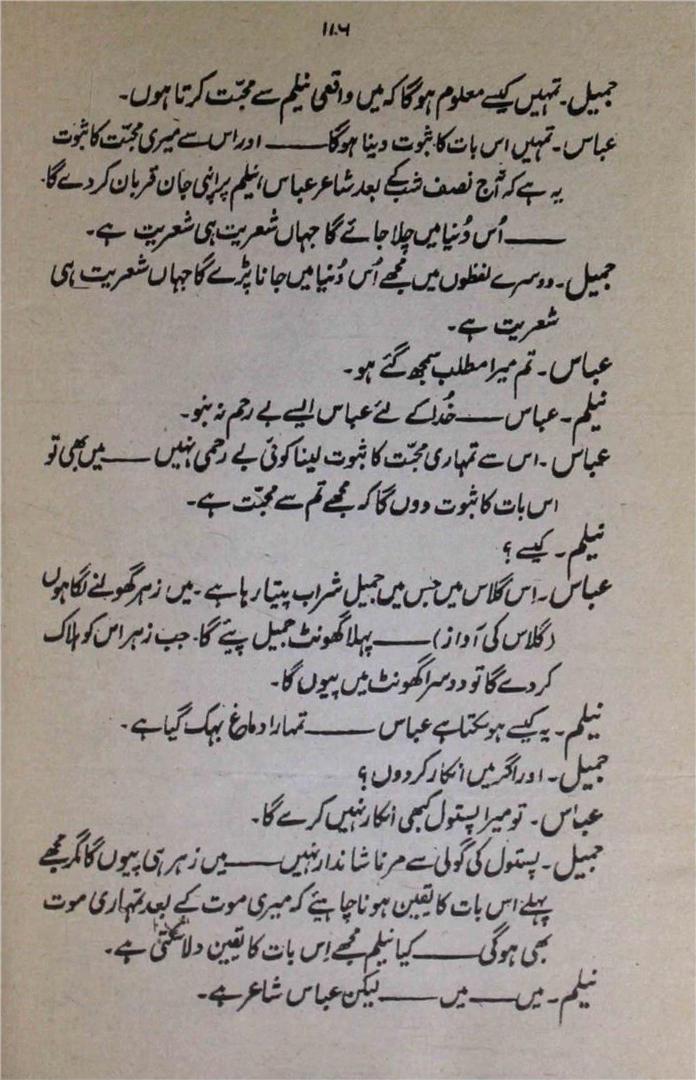 ۱۱۰۶
جمیل۔ تمہیں کیسے معلوم ہوگا کہ میں واقعی نیلم سے محبّت کرتا ہوں۔
عباس۔ تمہیں اس بات کا ثبوت دینا ہوگا ــــــ اور اس سے میری محبّت کا ثبوت
یہ ہے کہ آج نصف شب کے بعد شاعر عباس، نیلم پر اپنی جان قربان کر دے گا۔
ــــــ اُس دُنیا میں چلا جائے گا جہاں شعریت ہی شعریت ہے۔
جمیل۔ دوسرے لفظوں میں مجھے اُس دُنیا میں جانا پڑے گا جہاں شعریت ہی
شعریت ہے۔
عباس۔ تم میرا مطلب سمجھ گئے ہو۔
نیلم۔ عباس ــــــ خُدا کے لئے عباس ایسے بے رحم نہ بنو۔
عباس۔ اس سے تمہاری محبّت کا ثبوت لینا کوئی بے رحمی نہیں ــــــ میں بھی تو
اس بات کا ثبوت دوں گا کہ مجھے تم سے محبّت ہے۔
نیلم۔ کیسے ؟
عباس۔ اِس گلاس میں جس میں جمیل شراب پیتا رہا ہے۔ میں زہر گھولنے لگا ہوں
(گلاس کی آواز) ــــــ پہلا گھونٹ جمیل پیئے گا۔ جب زہر اس کو ہلاک
کر دے گا تو دوسرا گھونٹ میں پیوں گا۔
نیلم۔ یہ کیسے ہو سکتا ہے عباس ــــــ تمہارا دماغ بہک گیا ہے۔
جمیل۔ اور اگر میں انکار کر دوں ؟
عباس۔ تو میرا پستول کبھی انکار نہیں کرے گا۔
جمیل۔ پستول کی گولی سے مرنا شاندار نہیں ــــــ میں زہر ہی پیوں گا مگر مجھے
پہلے اس بات کا یقین ہونا چاہیئے کہ میری موت کے بعد تمہاری موت
بھی ہوگی ــــــ کیا نیلم مجھے اِس بات کا یقین دلا سکتی ہے۔
نیلم۔ میں ــــــ میں ــــــ لیکن عباس شاعر ہے۔